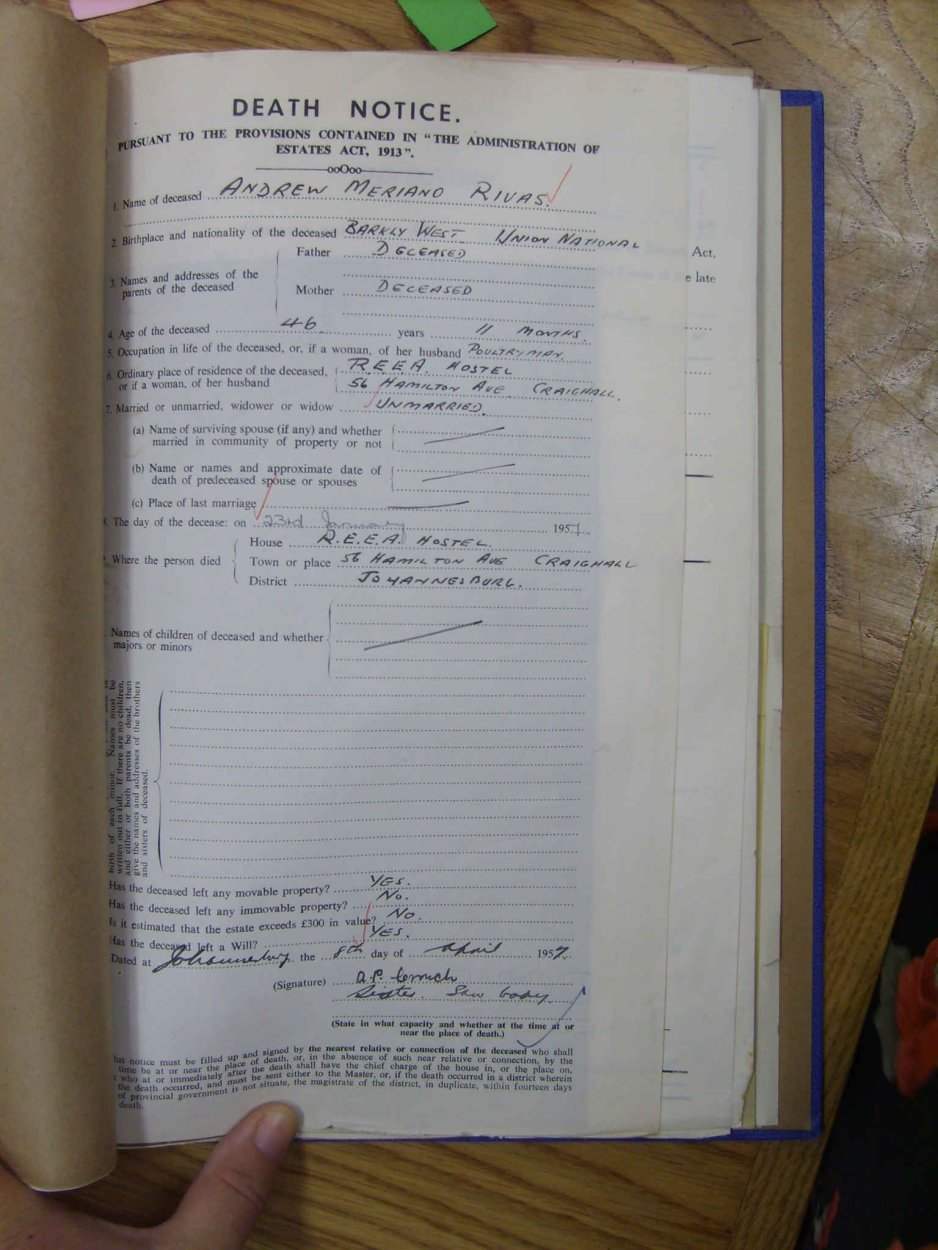 DEATH NOTICE.
PURSUANT TO THE PROVISIONS CONTAINED IN "THE ADMINISTRATION OF
ESTATES ACT, 1913".
ooOoo
1. Name of deceased ANDREW MERIANO RIVAS.
2. Birthplace and nationality of the deceased BARKLY WEST UNION NATIONAL
Act,
Father DECEASED
e late
3. Names and addresses of the
parents of the deceased
Mother DECEASED
4. Age of the deceased 46 years 11 MONTHS.
5. Occupation in life of the deceased, or, if a woman, of her husband POULTRYMAN.
6. Ordinary place of residence of the deceased, R.E.E.A. HOSTEL
or if a woman, of her husband 56 HAMILTON AVE CRAIGHALL.
7. Married or unmarried, widower or widow UNMARRIED.
(a) Name of surviving spouse (if any) and whether
married in community of property or not
(b) Name or names and approximate date of
death of predeceased spouse or spouses
(c) Place of last marriage
8. The day of the decease: on 23rd January 1957.
House R.E.E.A. HOSTEL.
Where the person died Town or place 56 HAMILTON AVE CRAIGHALL
District JOHANNESBURG.
Names of children of deceased and whether
majors or minors
birth of each minor. Names must be
written out in full. If there are no children,
and either or both parents be dead, then
give the names and addresses of the brothers
and sisters of deceased.
Has the deceased left any movable property? YES.
Has the deceased left any immovable property? NO.
Is it estimated that the estate exceeds £300 in value? NO.
Has the deceased left a Will? YES.
Dated at Johannesburg, the 8th day of April 1957.
(Signature) a.P.
Sister. Saw body
(State in what capacity and whether at the time at or
near the place of death.)
his notice must be filled up and signed by the nearest relative or connection of the deceased who shall
time be at or near the place of death, or, in the absence of such near relative or connection, by the
who at or immediately after the death shall have the chief charge of the house in, or the place on,
the death occurred, and must be sent either to the Master, or, if the death occurred in a district wherein
of provincial government is not situate, the magistrate of the district, in duplicate, within fourteen days
death.